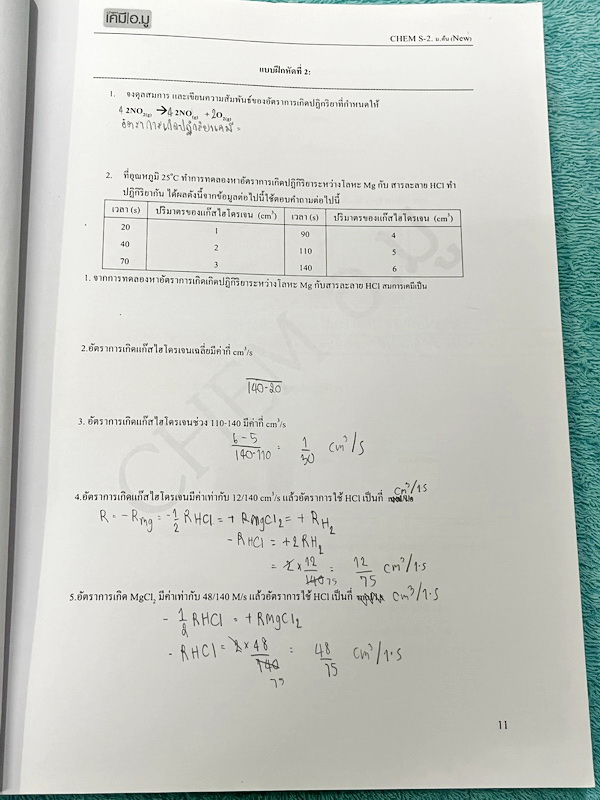 เคมี อ.มู
CHEM S-2. ม.ต้น (New)
แบบฝึกหัดที่ 2:
1. จงดุลสมการ และเขียนความสัมพันธ์ของอัตราการเกิดปฏิกิริยาที่กำหนดให้
4 2NO2(g) → 4 2NO(g) + 2O2(g)
อัตราการเกิดปฏิกิริยาเคมี =
2. ที่อุณหภูมิ 25°C ทำการทดลองหาอัตราการเกิดปฏิกิริยาระหว่างโลหะ Mg กับ สารละลาย HCl ทำ
ปฏิกิริยากัน ได้ผลดังนี้จากข้อมูลต่อไปนี้ใช้ตอบคำถามต่อไปนี้
เวลา (s) ปริมาตรของแก๊สไฮโดรเจน (cm³) เวลา (s) ปริมาตรของแก๊สไฮโดรเจน (cm³)
20 1 90 4
40 2 110 5
70 3 140 6
1. จากการทดลองหาอัตราการเกิดเกิดปฏิกิริยาระหว่างโลหะ Mg กับสารละลาย HCl สมการเคมีเป็น
2.อัตราการเกิดแก๊สไฮโดรเจนเฉลี่ยมีค่ากี่ cm³/s
140-20
3. อัตราการเกิดแก๊สไฮโดรเจนช่วง 110-140 มีค่ากี่ cm³/s
6-5 / 140-110 = 1/30 cm³/s
4.อัตราการเกิดแก๊สไฮโดรเจนมีค่าเท่ากับ 12/140 cm³/s แล้วอัตราการใช้ HCl เป็นกี่ cm³/1·s
R = -RMg = -1/2 RHCl = +RMgCl2 = +RH2
-RHCl = +2RH2
= 2 × 12/140 75 = 12/75 cm³/1·s
5.อัตราการเกิด MgCl2 มีค่าเท่ากับ 48/140 M/s แล้วอัตราการใช้ HCl เป็นกี่ cm³/1·s
-1/2 RHCl = +RMgCl2
-RHCl = 2 × 48/140 75 = 48/75 cm³/1·s
CHEM อ.มู
11